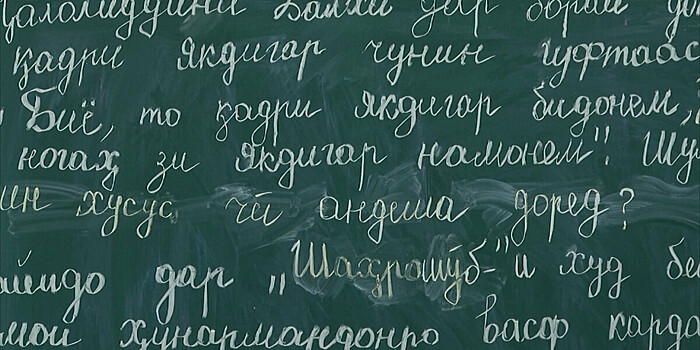 Ҷалолиддини Балхӣ дар бораи
қадри якдигар чунин гуфтаас
"Биё, то қадри якдигар бидонем,
ногаҳ зи якдигар намонем"! Шу
ин хусус чӣ андеша доред?
айидо дар „Шаҳрошӯб-"и худ бе
ҳунармандонро васф карда